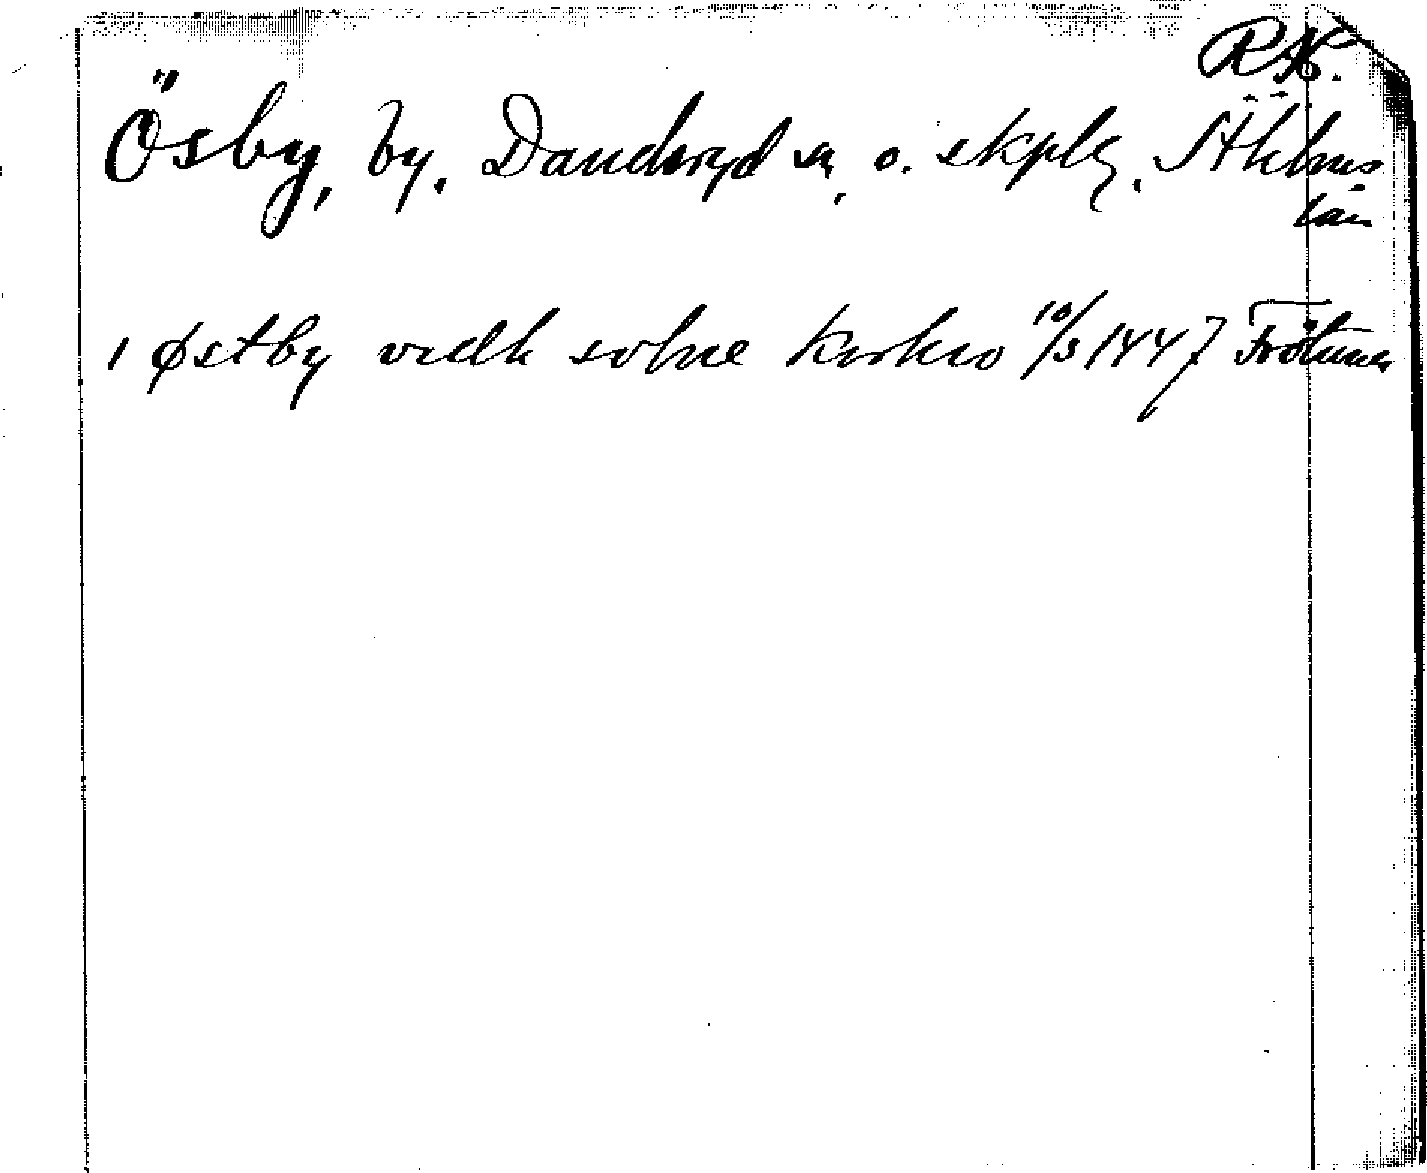 RK.
Ösby, by. Danderyd sn, o. skplg. Sthlms
län
i Østby vedh solne kirkio 10/3 1447 Frötuna